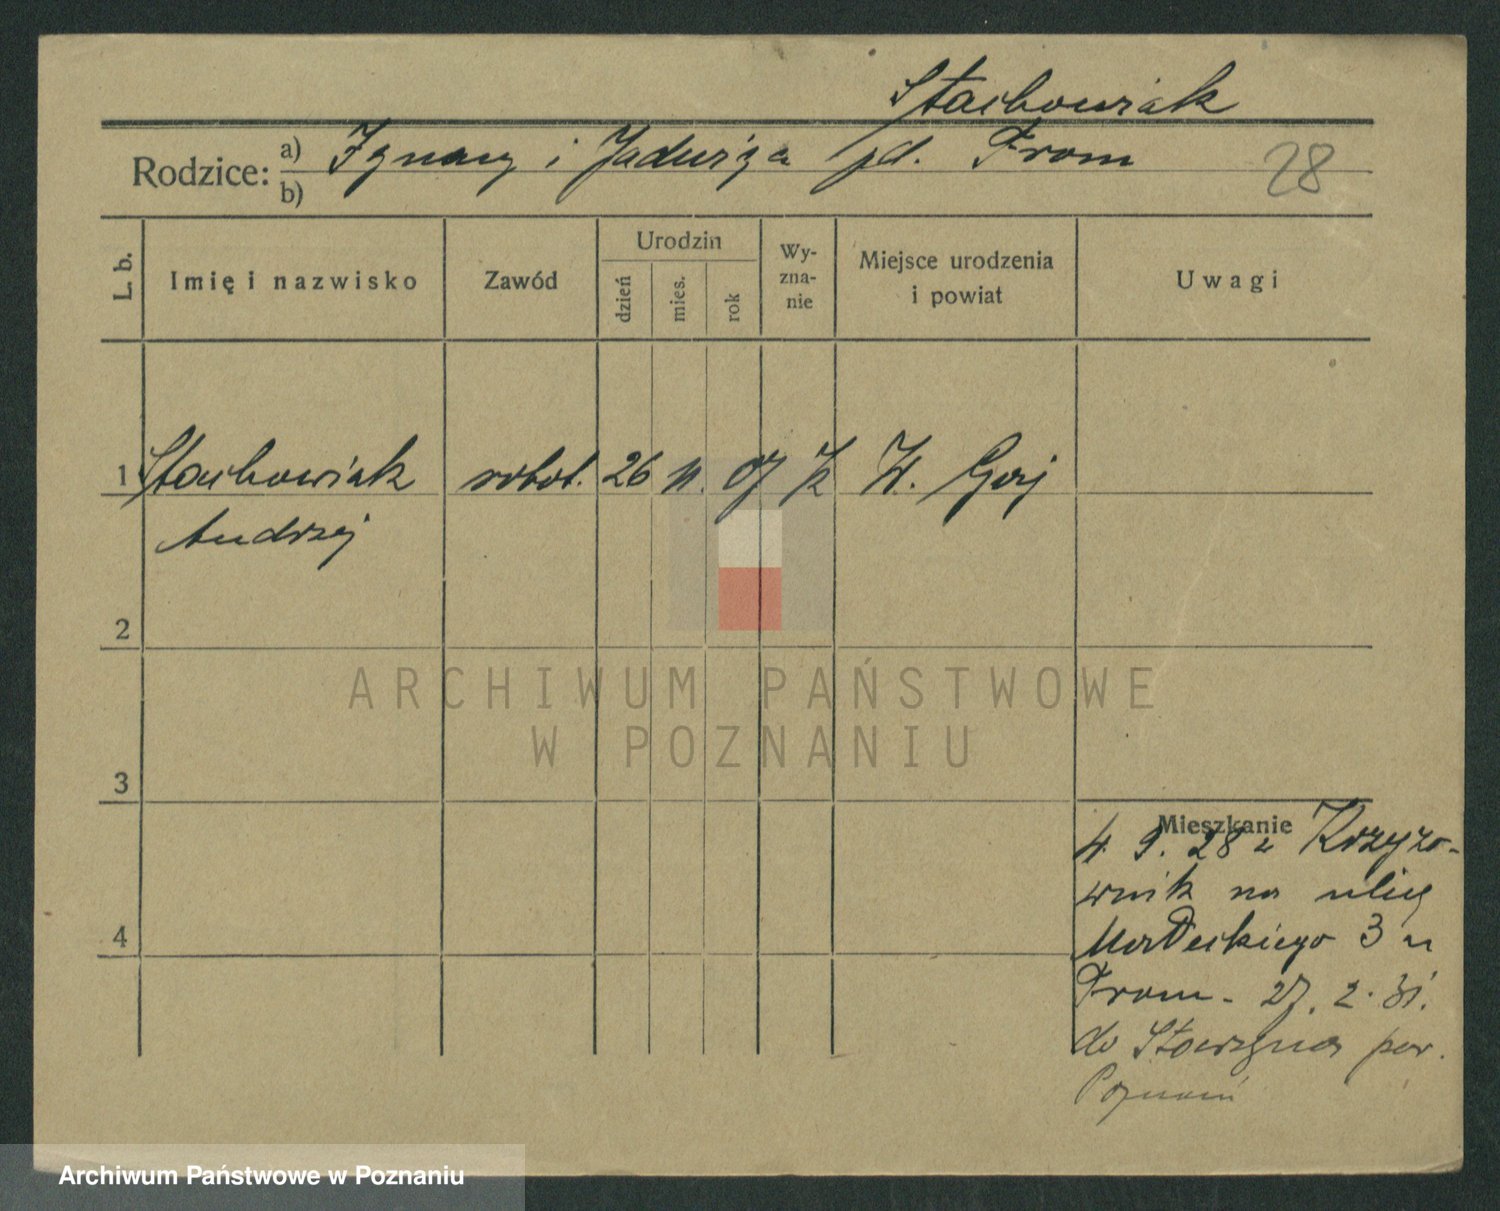 Stachowiak
Rodzice: a) Ignacy i Jadwiga pd. From 28
b)
L. b. Imię i nazwisko Zawód Urodzin dzień mies. rok Wy-zna-nie Miejsce urodzenia i powiat Uwagi
1 Stachowiak robot. 26 11. 07 k W. Gaj
Andrzej
2
ARCHIWUM PAŃSTWOWE
W POZNANIU
3
Mieszkanie
4. 9. 28 z Krzyżo-
wnik na ulicę
Małeckiego 3 u
4
From - 27. 2. 31.
do pow.
Poznań
Archiwum Państwowe w Poznaniu